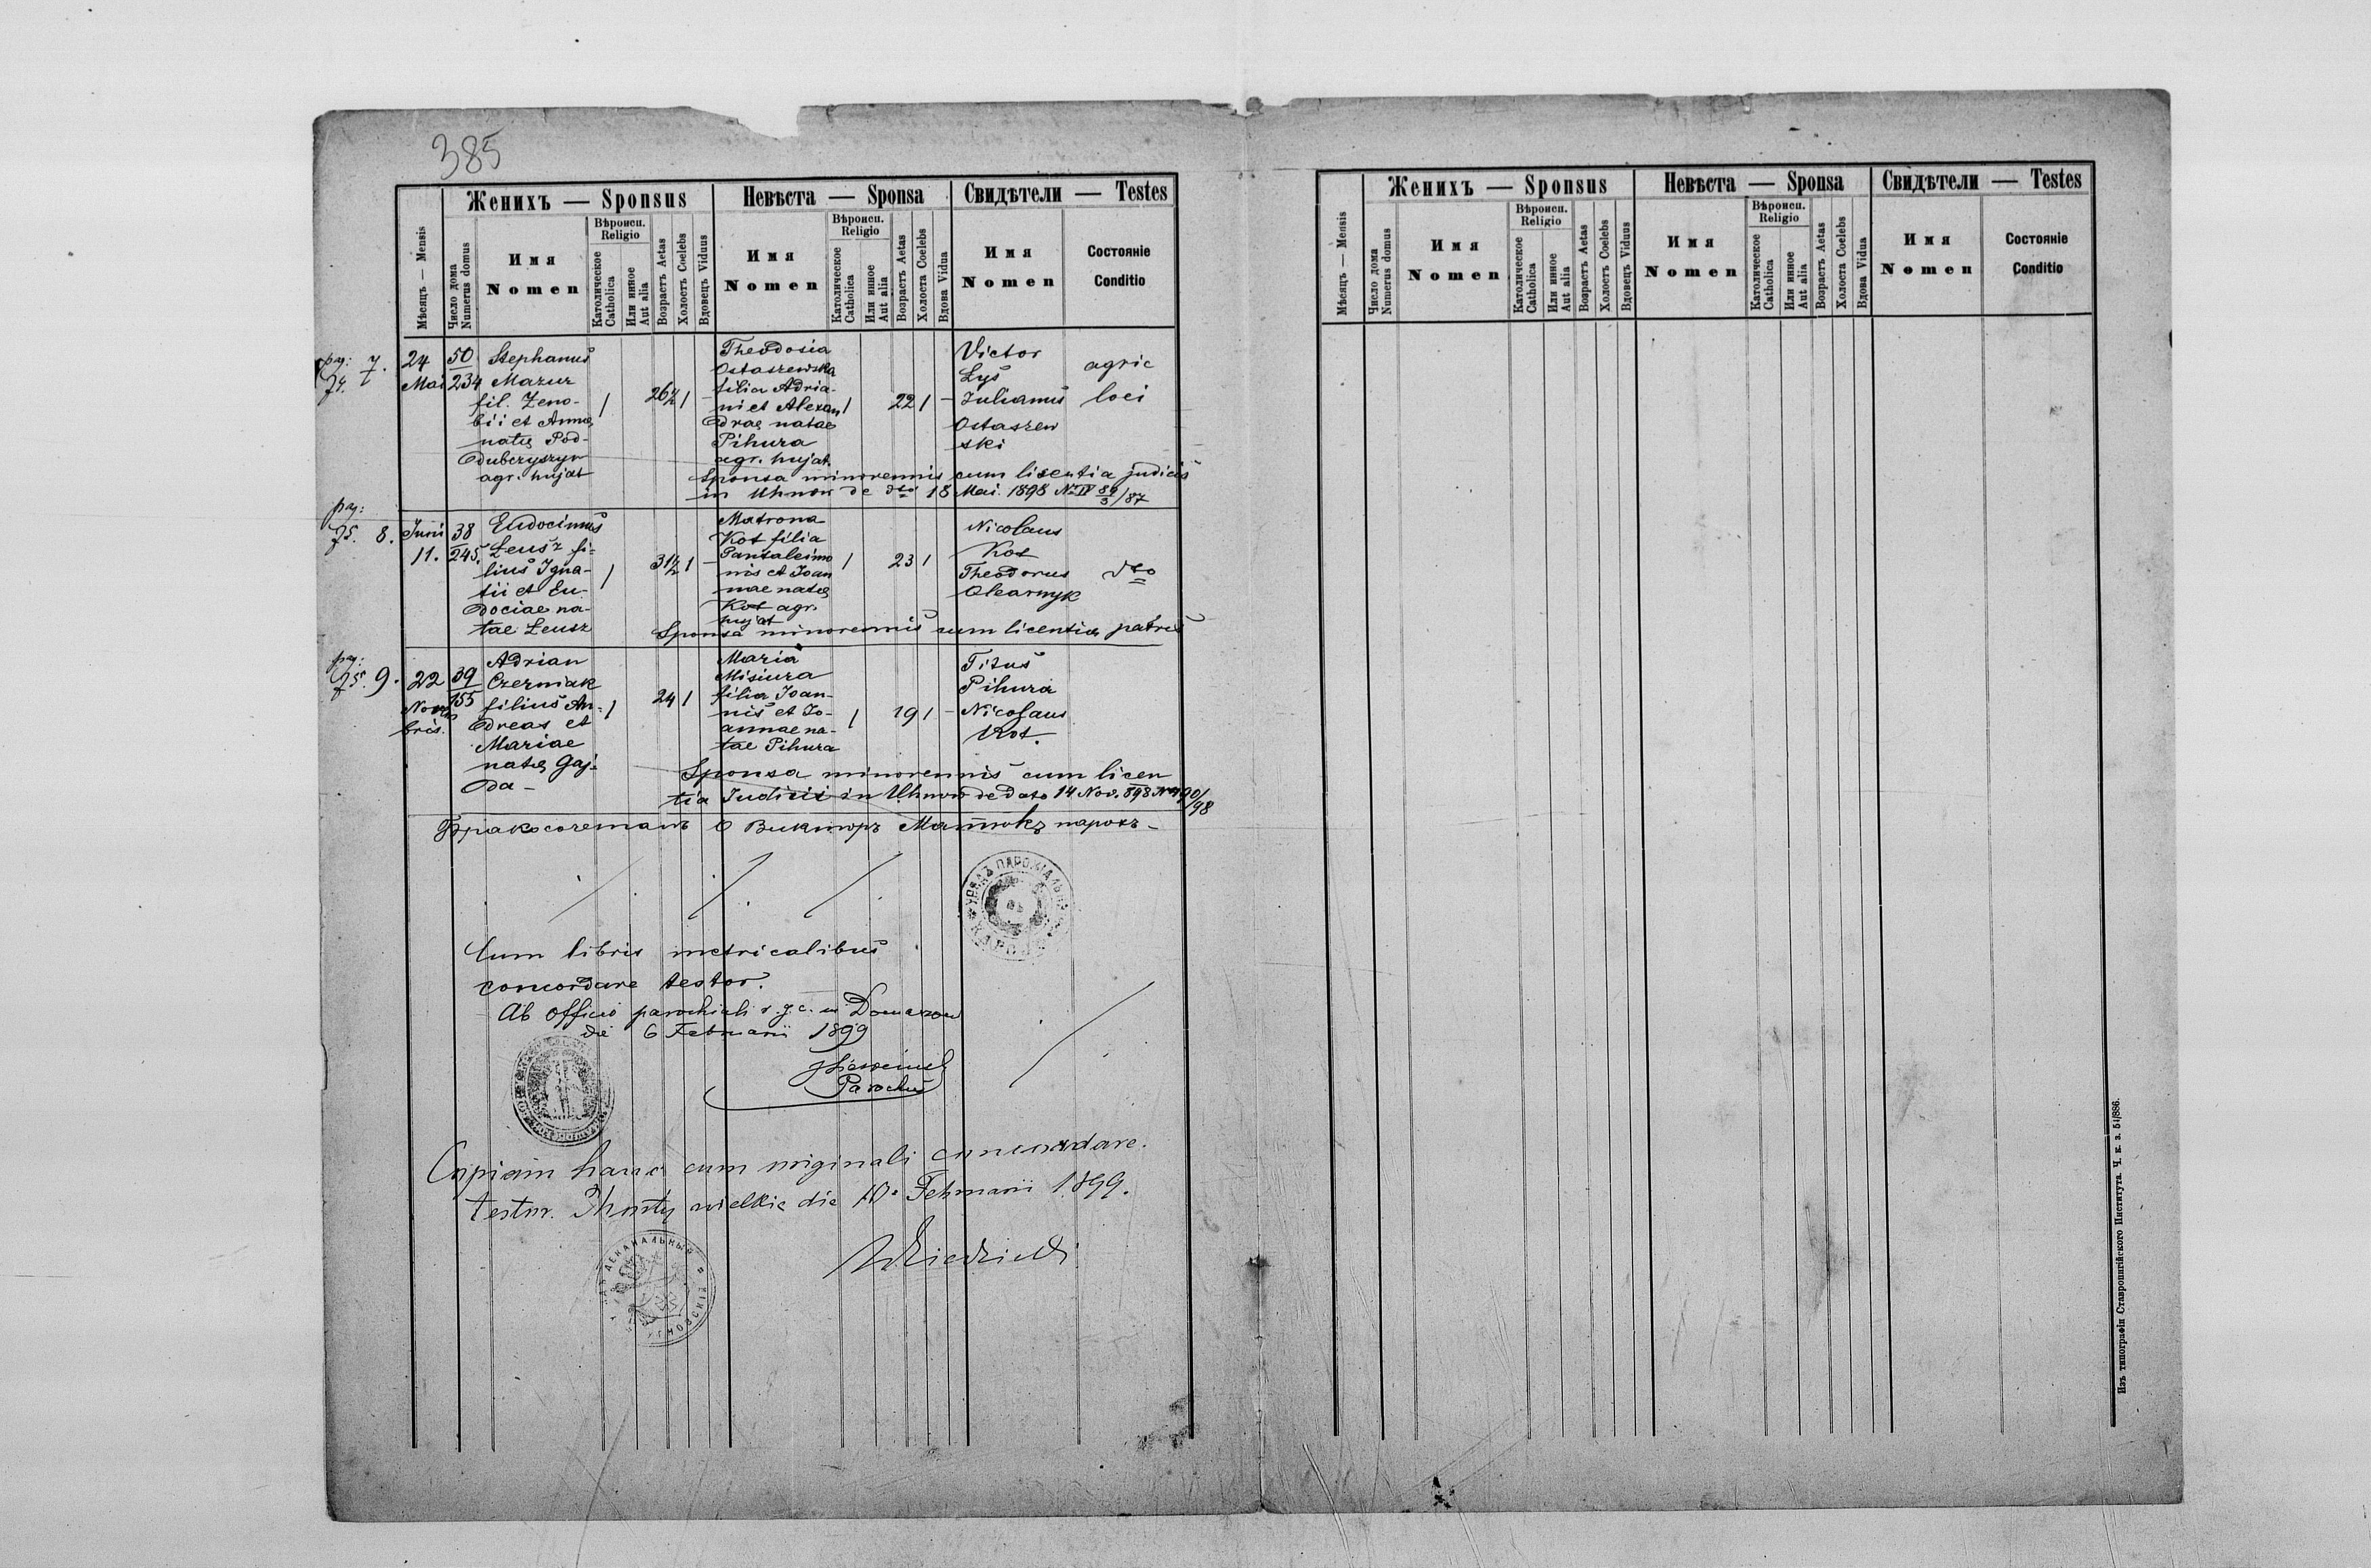 385
Женихъ — Sponsus
Невѣста — Sponsa
Свидѣтели — Testes
Мѣсяцъ — Mensis
Число дома
Numerus domus
Имя
Nomen
Вѣроисп.
Religio
Католическое
Catholica
Или инное
Aut alia
Возрастъ Aetas
Холостъ Coelebs
Вдовецъ Viduus
Имя
Nomen
Вѣроисп.
Religio
Католическое
Catholica
Или инное
Aut alia
Возрастъ Aetas
Холоста Coelebs
Вдова Vidua
Имя
Nomen
Состояніе
Conditio
pag:
74.
7.
24
Mai
50
234
Stephanus
Mazur
fil. Zeno-
bii et Annae
natae Pod-
dubczyszyn
agr. hujat
/
26½
1
-
Theodosia
Ostaszewska
filia Adria-
ni et Alexan
drae natae
Pihura
agr. hujat.
/
22
1
-
Victor
Lys
Julianus
Ostaszew
ski
agric
loci
Sponsa minorennis cum licentia judicis
in Uhnow de dto 18 Mai. 1898 Nr IV 89/3/87
pag:
75.
8.
Juni
11.
38
245.
Eudocimus
Leusz fi-
lius Igna-
tii et Eu-
dociae na-
tae Leusz
/
31½
1
-
Matrona
Kot filia
Pantaleimo
nis et Joan
nae natae
Kot agr.
hujat
/
23
1
Nicolaus
Kot
Theodorus
Olearnyk
dto
Sponsa minorennis cum licentia patris
pag:
75.
9.
22
Novem
bris.
39
155
Adrian
Czerniak
filius An-
dreas et
Mariae
natae Gaj-
da -
/
24
1
Maria
Misiura
filia Joan-
nis et Jo-
annae na-
tae Pihura
/
19
1
-
Titus
Pihura
Nicolaus
Kot.
Sponsa minorennis cum licen
tia Judicii in Uhnow de dato 14 Nov. 898 Nr 490/98
Бракосочеталъ О Викторъ Матюкъ парохъ -
УРЯДЪ ПАРОХІАЛЬН
КАРО
Cum libris metricalibus
concordare testor.
Ab officio parochiali r.g.c. in
die 6 Februarii 1899
Parochus
Copiam hanc cum originali concordare.
testor. Mosty wielkie die 10. Februarii 1899.
ДЕКАНАЛЬНЫЙ
Женихъ — Sponsus
Невѣста — Sponsa
Свидѣтели — Testes
Мѣсяцъ — Mensis
Число дома
Numerus domus
Имя
Nomen
Вѣроисп.
Religio
Католическое
Catholica
Или инное
Aut alia
Возрастъ Aetas
Холостъ Coelebs
Вдовецъ Viduus
Имя
Nomen
Вѣроисп.
Religio
Католическое
Catholica
Или инное
Aut alia
Возрастъ Aetas
Холоста Coelebs
Вдова Vidua
Имя
Nomen
Состояніе
Conditio
Изъ типографіи Ставропигійского Института. Ч. к. з. 51/886.